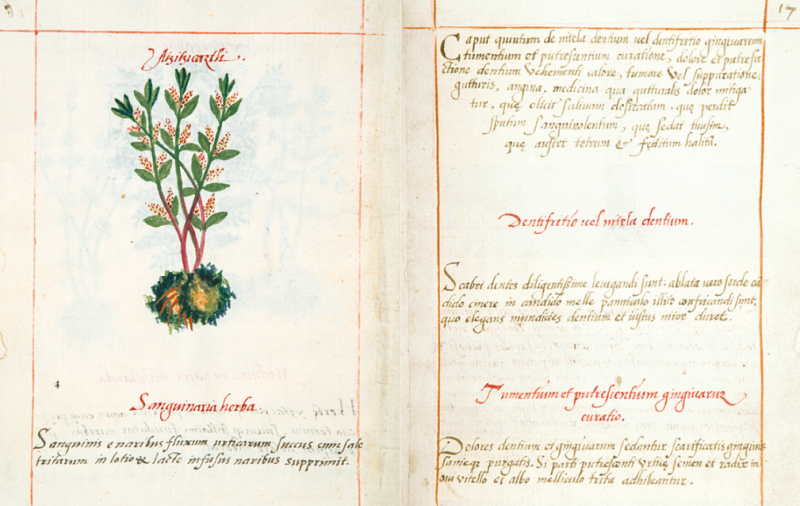 Atzitzicaztli.
Sanguinaria herba
Sanguinis e naribus fluxum urticarum succus cum sale
tritarum in lotio & lacte infusus naribus supprimit.
17
Caput quintum de mietla dentium vel dentifritio gingivarum
tumentium et putrescentium curatione, dolore et putrefa
ctione dentium vehementi calore, tumore vel suppuratione
gutturis, angina, medicina qua gutturalis dolor mitiga
tur, quę elicit salivam desiccatam. que perdit
sputum sanguinolentum, quę sedat tussim,
quę aufert tetrum & fęditum halitū.
Dentifritio vel mietla dentium.
Scabri dentes diligentissime levigandi sunt: ablata vero sorde cā
dido cinere in candido melle panniculo illito confricandi sunt,
quo elegans mundicies dentium et iustus nitor duret.
Tumentium et putrescentium gingivarum
curatio.
Dolores dentium et gingivarum sedantur scarificatis gingiuis
sanieque purgatis. Si parti putrescenti urticę semen et radix in
oui vitello et albo melliculo trita adhibeantur.